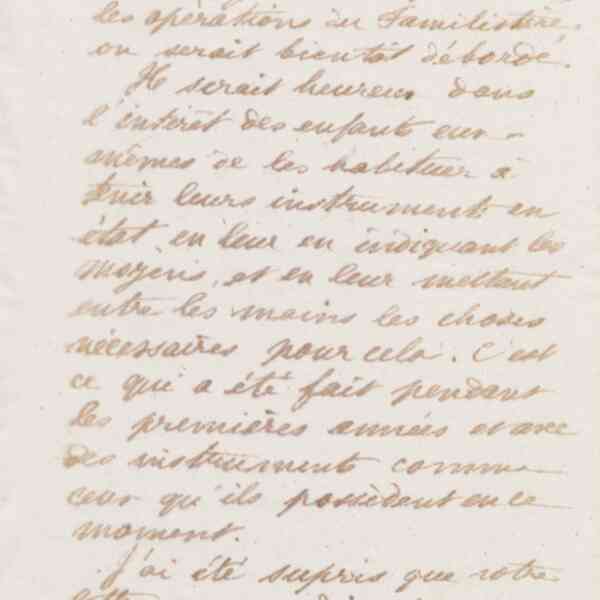 les opérations du Familistère,
on serait bientôt débordé.
Il serait heureux dans
l'intérêt des enfants eux-
mêmes de les habituer à
tenir leurs instruments en
état, en leur en indiquant les
moyens, et en leur mettant
entre les mains les choses
nécessaires pour cela. C'est
ce qui a été fait pendant
les premières années et avec
des instruments comme
ceux qu'ils possèdent en ce
moment.
J'ai été supris que votre